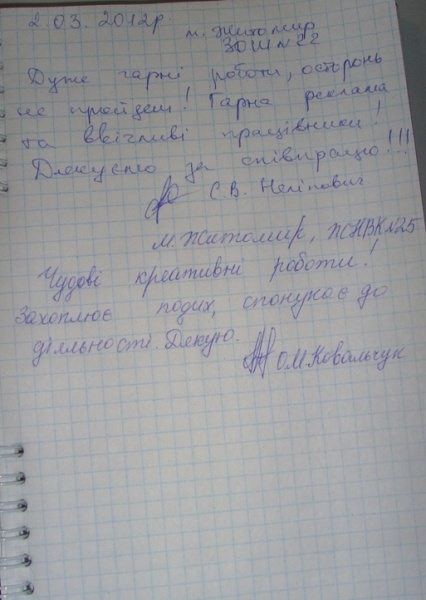 2.03.2012р. м. Житомир
ЗОШ №22
Дуже гарні роботи, осторонь
не пройдеш! Гарна реклама
та ввічливі працівники!
Дякуємо за співпрацю!!!
С.В. Неліпович
м. Житомир, ЖСНВК №25
Чудові креативні роботи!
Захоплює подих, спонукає до
діяльності. Дякую.
О.М. Ковальчук